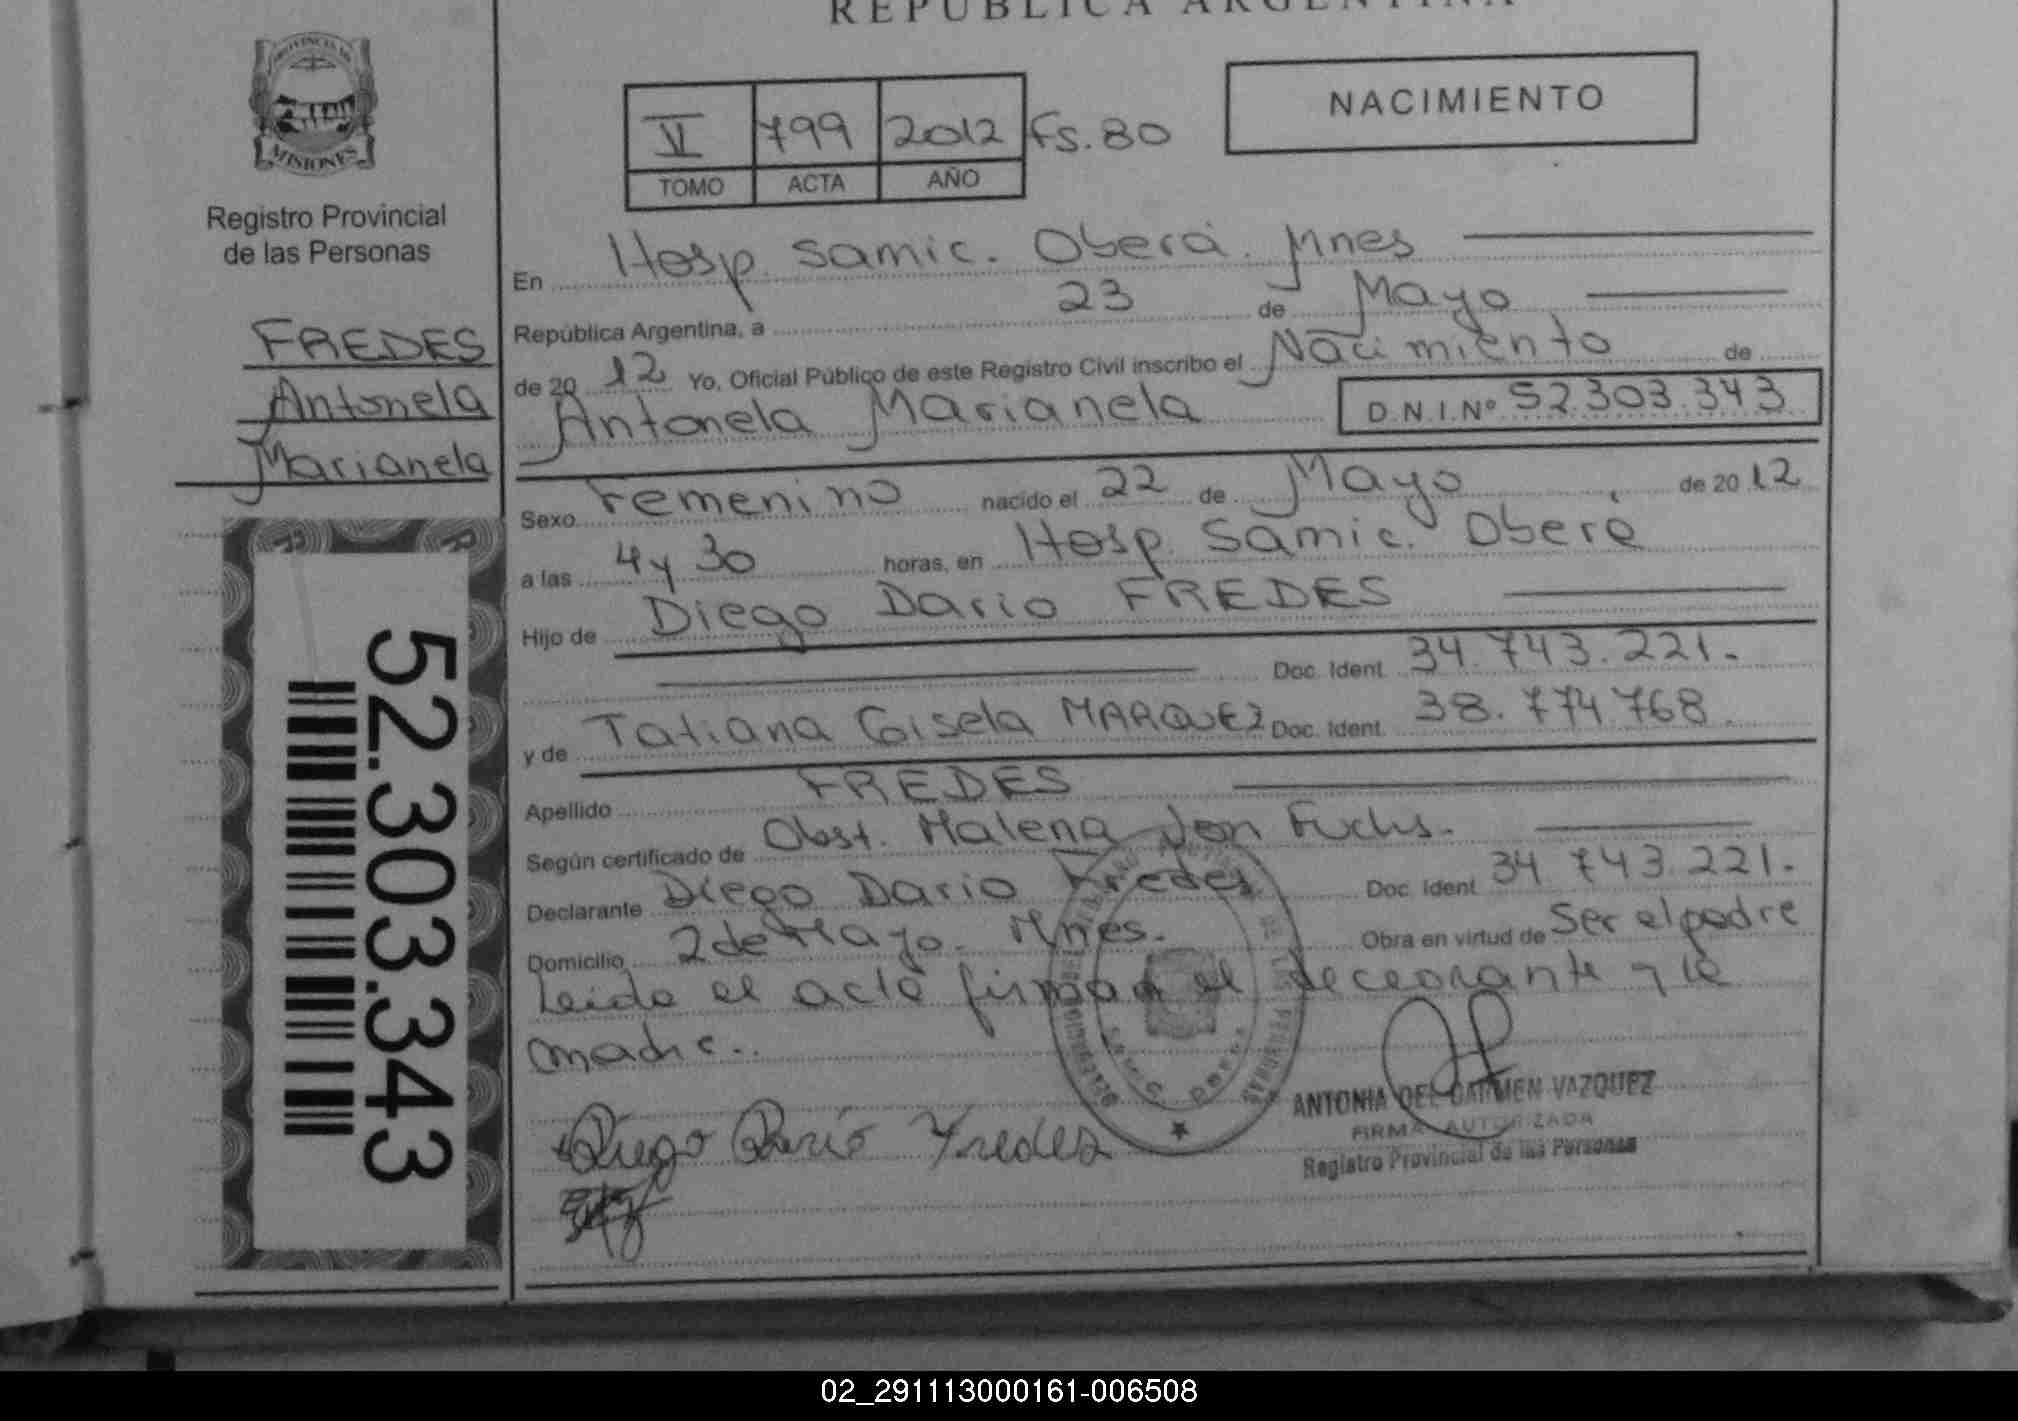 REPÚBLICA ARGENTINA
PROVINCIA DE
MISIONES
Registro Provincial
de las Personas
FREDES
Antonela
Marianela
52.303.343
NACIMIENTO
VI 799 2012 Fs. 80
TOMO ACTA AÑO
En Hosp. Samic. Oberá. Mnes
República Argentina, a 23 de Mayo
de 20 12 Yo, Oficial Público de este Registro Civil inscribo el Nacimiento de
Antonela Marianela D.N.I.Nº 52.303.343
Sexo Femenino nacido el 22 de Mayo de 20 12
a las 4 y 30 horas, en Hosp. Samic. Oberá
Hijo de Diego Dario FREDES
Doc. Ident. 34.743.221.
y de Tatiana Gisela MARQUEZ Doc. Ident. 38.774.768
Apellido FREDES
Según certificado de Obst. Malena Fuchs.
Declarante Diego Dario Fredes Doc. Ident 34 743.221.
Domicilio 2 de Mayo. Mnes. Obra en virtud de Ser el padre
Leida el acta firman el declarante y la
madre..
Diego Dario Fredes
ANTONIA DEL CARMEN VAZQUEZ
FIRMA AUTORIZADA
Registro Provincial de las Personas
02_291113000161-006508